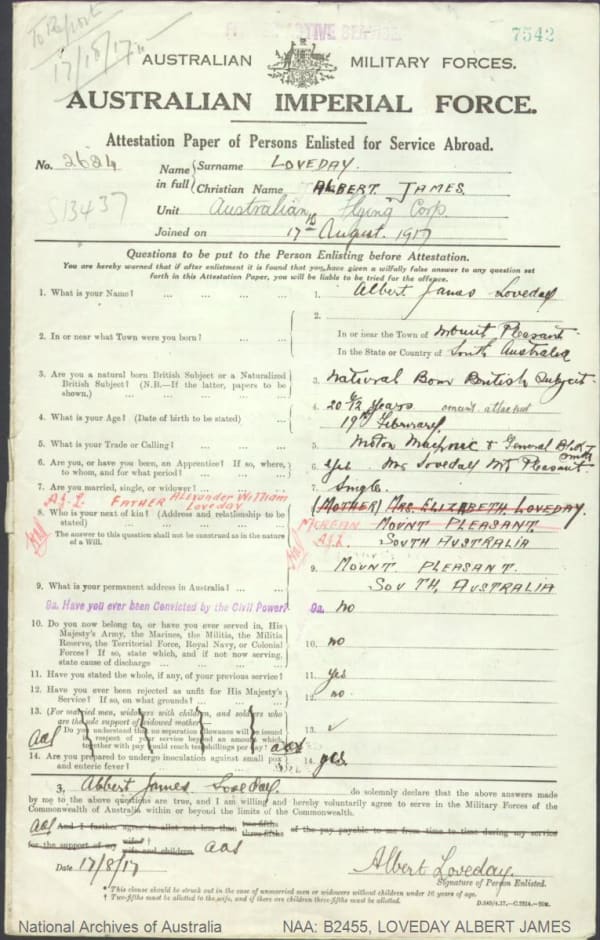 To Report
17/8/17
ACTIVE SERVICE
7542
AUSTRALIAN MILITARY FORCES.
AUSTRALIAN IMPERIAL FORCE.
Attestation Paper of Persons Enlisted for Service Abroad.
No. 2624
Name in full { Surname LOVEDAY.
Christian Name ALBERT JAMES.
S13437
Unit Australian Flying Corp.
Joined on 17th August. 1917
Questions to be put to the Person Enlisting before Attestation.
You are hereby warned that if after enlistment it is found that you have given a wilfully false answer to any question set
forth in this Attestation Paper, you will be liable to be tried for the offence.
1. What is your Name? ... ... ... 1. Albert James Loveday
2. In or near what Town were you born? ... ... 2. In or near the Town of Mount Pleasant
In the State or Country of South Australia
3. Are you a natural born British Subject or a Naturalized
British Subject? (N.B.—If the latter, papers to be
shown.) ... ... ... 3. Natural Born British Subject
4. What is your Age? (Date of birth to be stated) ... 4. 20 6/12 years consent attached
19th February
5. What is your Trade or Calling? ... ... 5. Motor Mechanic & General Blk Smith
6. Are you, or have you been, an Apprentice? If so, where,
to whom, and for what period? ... ... 6. Yes Mr Loveday Mt Pleasant
7. Are you married, single, or widower? ... 7. Single
A.J.L. FATHER Alexander William
Loveday
8. Who is your next of kin? (Address and relationship to be
stated) ... ... 8. (MOTHER) MRS ELIZABETH LOVEDAY.
MOUNT PLEASANT.
A.J.L. SOUTH AUSTRALIA
The answer to this question shall not be construed as in the nature
of a Will.
9. What is your permanent address in Australia? ... 9. MOUNT PLEASANT.
SOUTH. AUSTRALIA
9a. Have you ever been Convicted by the Civil Power? 9a. No
10. Do you now belong to, or have you ever served in, His
Majesty's Army, the Marines, the Militia, the Militia
Reserve, the Territorial Force, Royal Navy, or Colonial
Forces? If so, state which, and if not now serving,
state cause of discharge ... ... ... 10. no
11. Have you stated the whole, if any, of your previous service? 11. yes
12. Have you ever been rejected as unfit for His Majesty's
Service? If so, on what grounds? ... ... 12. no.
13. (For married men, widowers with children, and soldiers who
are the sole support of widowed mother)
Do you understand that no separation allowance will be issued
in respect of your service beyond an amount which
together with pay could reach ten shillings per day? 13. ✓
14. Are you prepared to undergo inoculation against small pox
and enteric fever? 14. yes.
3, Albert James Loveday. do solemnly declare that the above answers made
by me to the above questions are true, and I am willing and hereby voluntarily agree to serve in the Military Forces of the
Commonwealth of Australia within or beyond the limits of the Commonwealth.
And I further agree to allot not less than two-fifths three-fifths of the pay payable to me from time to time during my service
for the support of my wife wife and children
Date 17/8/17
Albert Loveday.
Signature of Person Enlisted.
* This clause should be struck out in the case of unmarried men or widowers without children under 16 years of age.
† Two-fifths must be allotted to the wife, and if there are children three-fifths must be allotted.
National Archives of Australia
NAA: B2455, LOVEDAY ALBERT JAMES